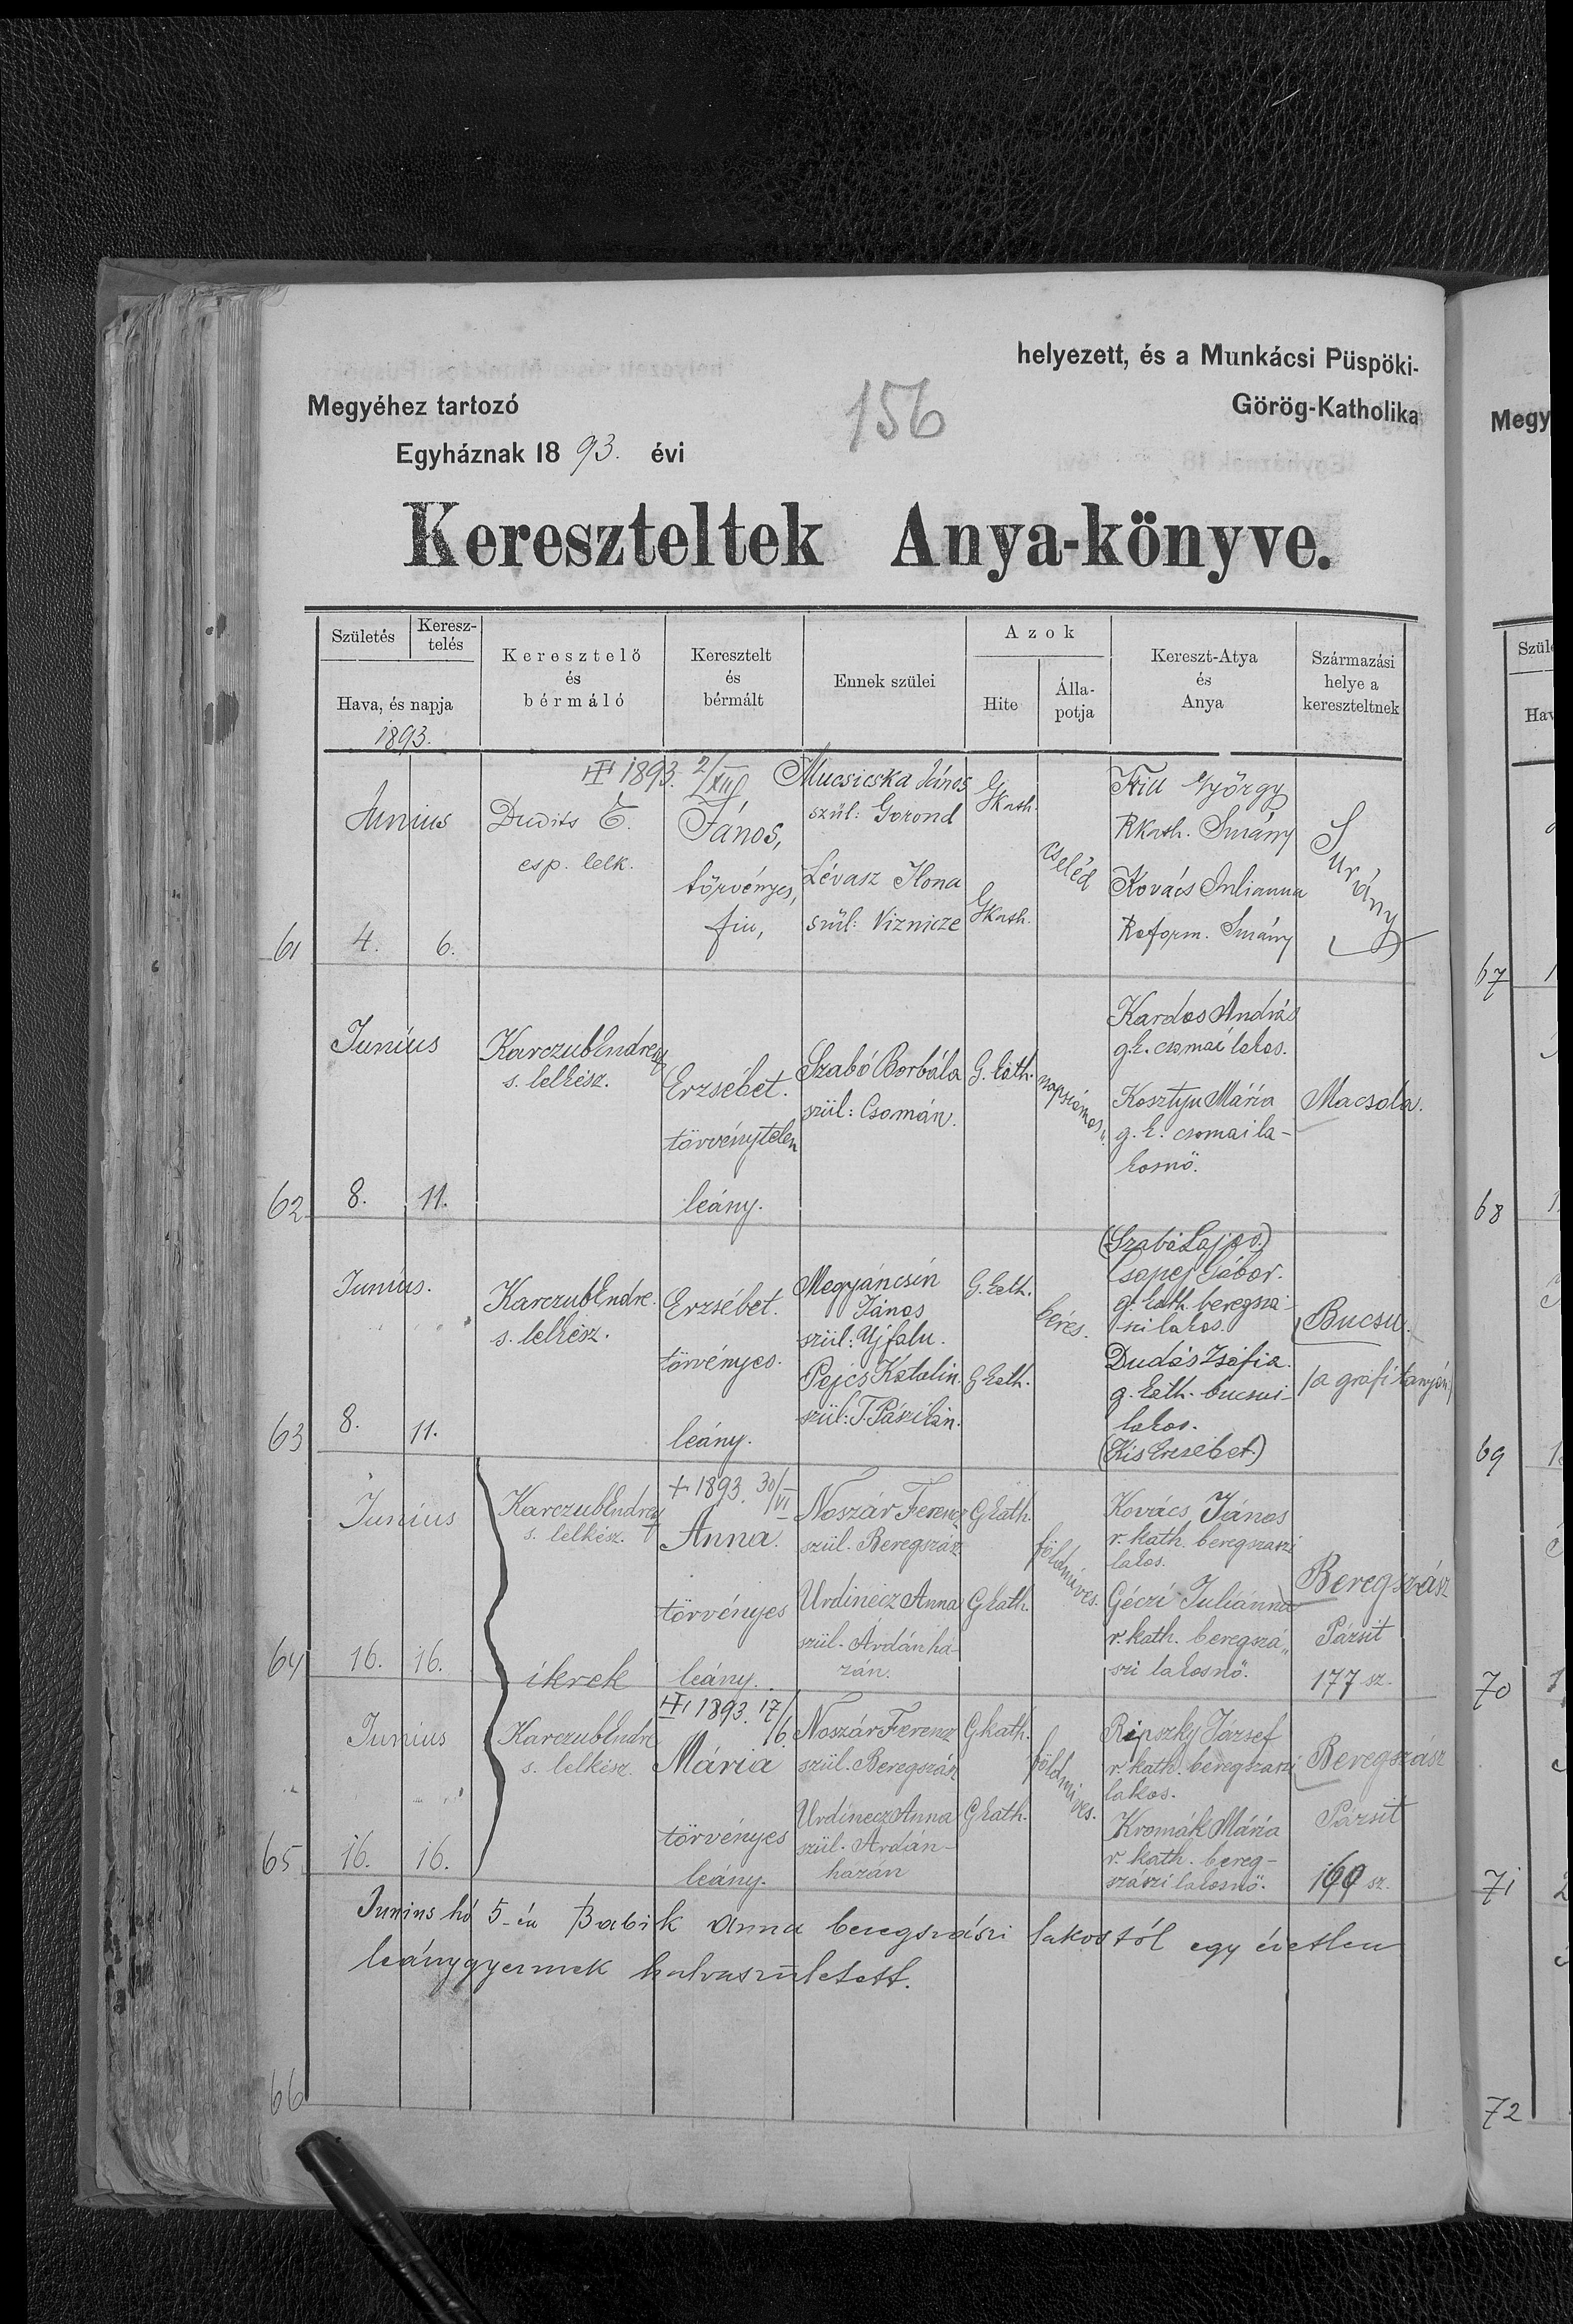 helyezett, és a Munkácsi Püspöki-
Megyéhez tartozó 156 Görög-Katholika
Egyháznak 18 93. évi
Kereszteltek Anya-könyve.
Születés
Keresz-
telés
Hava, és napja
1893.
Keresztelő
és
bérmáló
Keresztelt
és
bérmált
Ennek szülei
Azok
Hite
Álla-
potja
Kereszt-Atya
és
Anya
Származási
helye a
kereszteltnek
61
Junius
4. 6.
Dudits E.
esp. lelk.
1893. 2/XII
János,
törvényes,
fiu,
Mucsicska János
szül: Gorond
Lévasz Ilona
szül: Viznicze
Gkath.
Gkath.
cseléd
György
Rkath. Surány
Kovács Julianna
Reform. Surány
Surány
62
Junius
8. 11.
Karczub Endre
s. lelkész.
Erzsébet.
törvénytelen
leány.
Szabó Borbála
szül: Csomán.
G. kath.
napszámos.
Kardos András
g.k. csomai lakos.
Kosztyu Mária
g. k. csomai la-
kosnő.
Macsola.
63
Junius.
8. 11.
Karczub Endre.
s. lelkész.
Erzsébet.
törvényes.
leány.
Megyáncsin
János
szül: Ujfalu.
Pejcs Katalin.
szül: T. Pászikán.
G. kath.
G kath.
béres.
(Szabó Lajos.)
Csopej Gábor.
g. kath. beregszá-
szi lakos.
Dudás Zsófia.
g. kath. bucsui-
lakos.
(Kis Erzsébet.)
Bucsu.
/a grófi tanyán/
64
Junius
16. 16.
Karczub Endre
s. lelkész.
ikrek
+ 1893. 30/VI
Anna.
törvényes
leány.
Noszár Ferencz
szül. Beregszász
Urdinecz Anna
szül. Árdánhá-
zán.
G kath.
G kath.
földmives.
Kovács János
r. kath. beregszászi
lakos.
Géczi Juliánna
r. kath. beregszá-
szi lakosnő.
Beregszász
Pázsit
177 sz.
65
Junius
16. 16.
Karczub Endre
s. lelkész.
1893. 17/6.
Mária
törvényes
leány.
Noszár Ferencz
szül. Beregszász
Urdinecz Anna
szül. Árdán-
házán
G kath.
G kath.
földmives.
Ripszky József
r. kath. beregszászi
lakos.
Kromák Mária
r. kath. bereg-
szászi lakosnő.
Beregszász
Pázsit
sz.
Junius hó 5-én Babik Anna beregszászi lakostól egy éretlen
leánygyermek halvaszületett.
66
Megy
Szüle
Hav
67
68
69
70
71
72